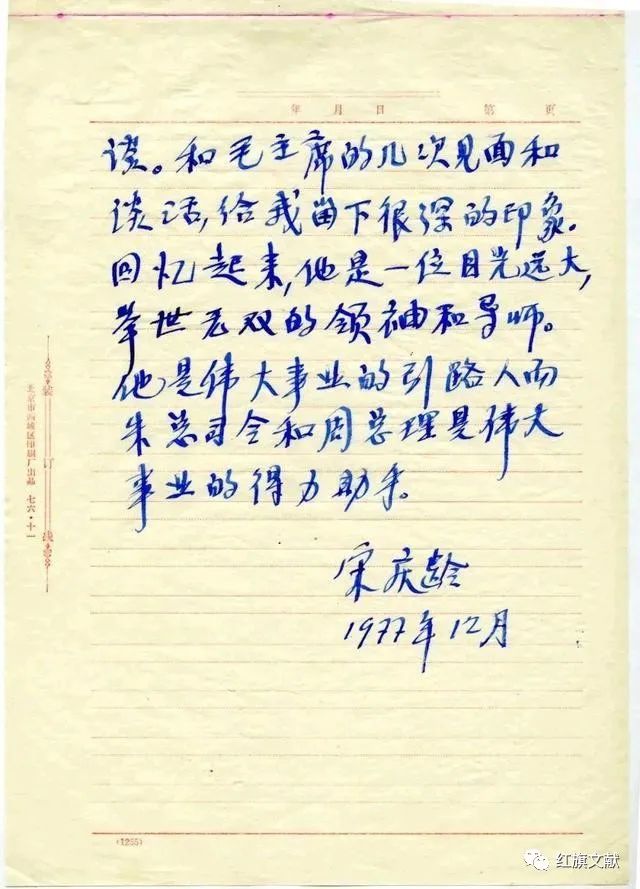 年 月 日 第 页
谈。和毛主席的几次见面和
谈话,给我留下很深的印象.
回忆起来,他是一位目光远大,
举世无双的领袖和导师。
他是伟大事业的引路人而
朱总司令和周总理是伟大
事业的得力助手。
宋庆龄
1977年12月
装
订
线
北京市西城区印刷厂出品 七六·十一
(1255)
红旗文献